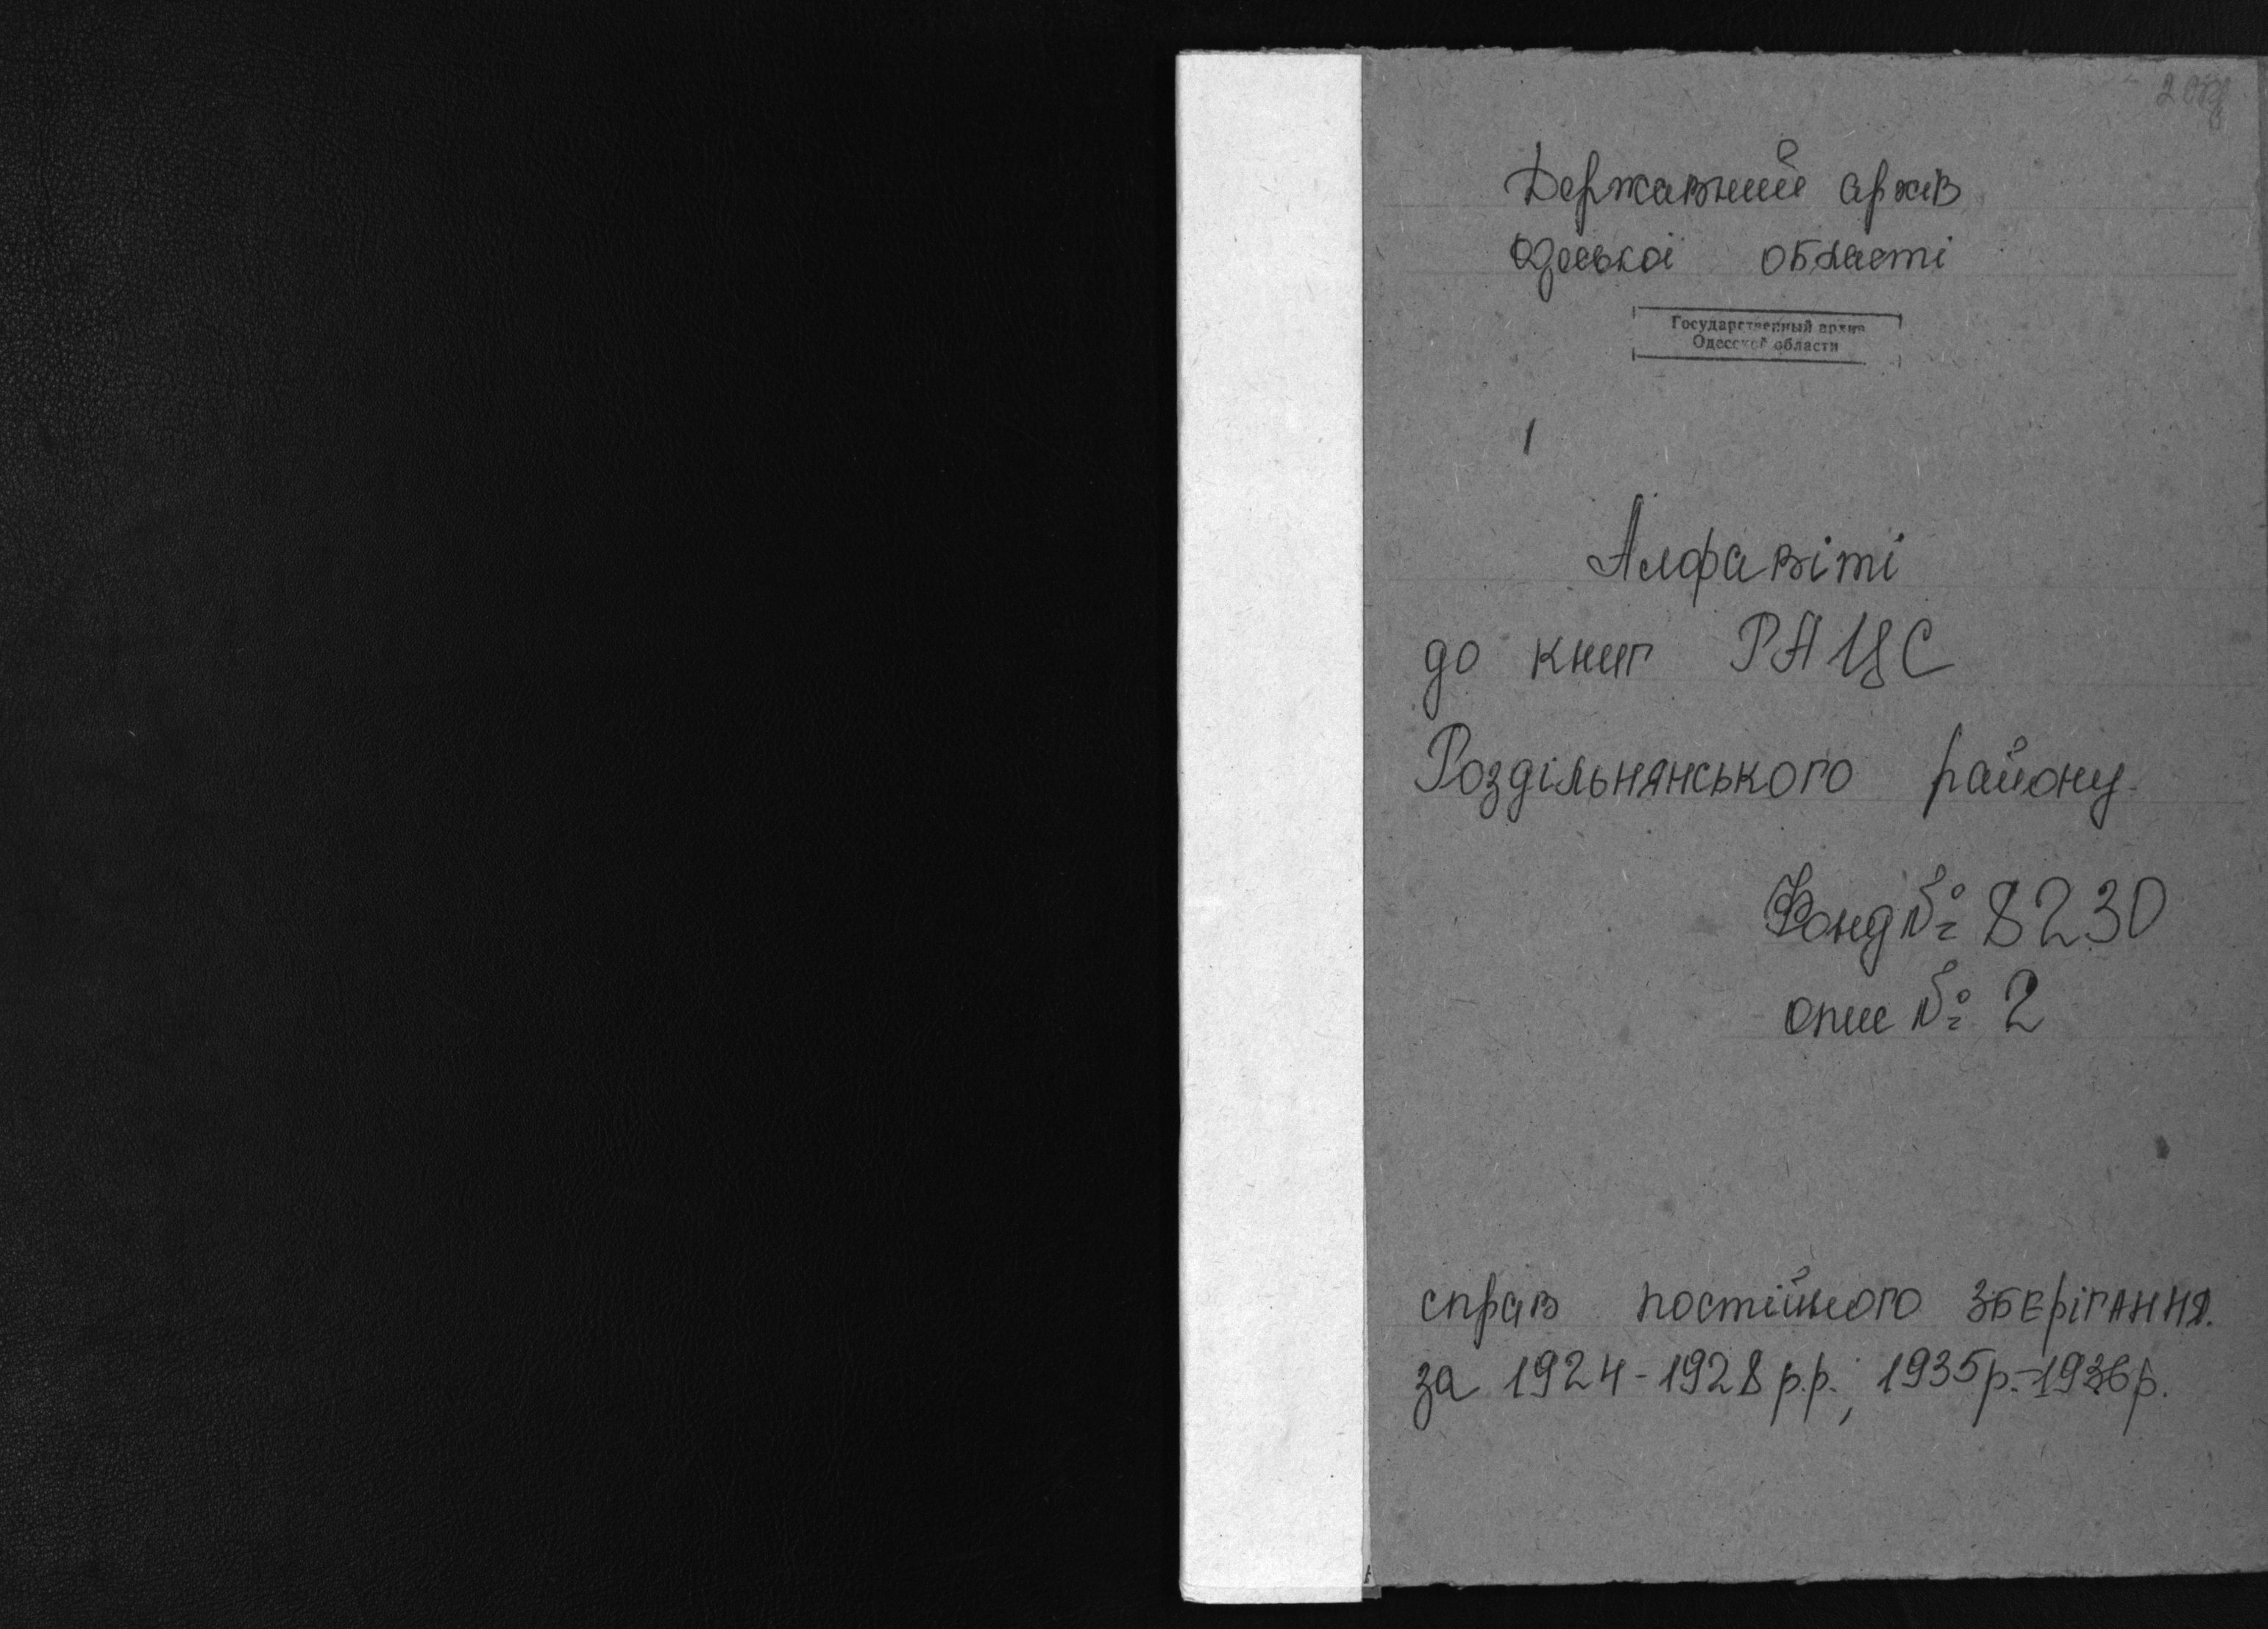 Державний архів
Одеської області
Государственный архив
Одесской области
Алфавіті
до книг РАЦС
Роздільнянського району
Фонд № 8230
опис № 2
справ постійного зберігання.
за 1924-1928 р.р., 1935р.-1936р.